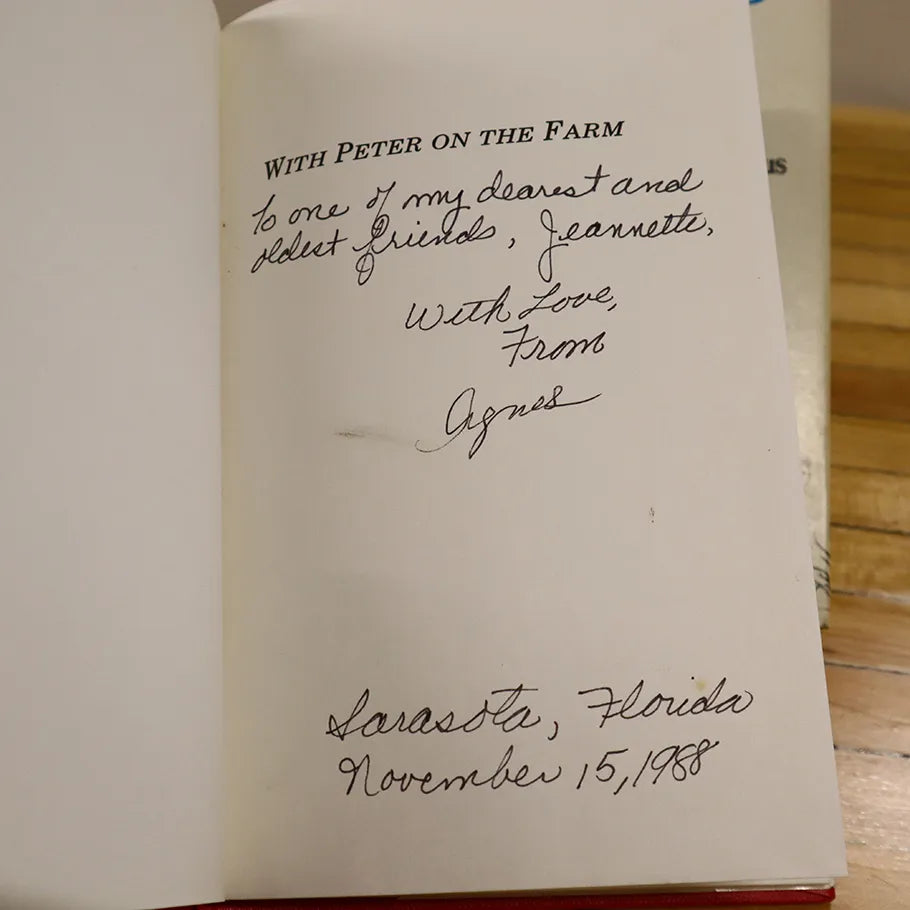 WITH PETER ON THE FARM
To one of my dearest and
oldest friends, Jeannette,
With Love,
From
Agnes
Sarasota, Florida
November 15, 1988
us